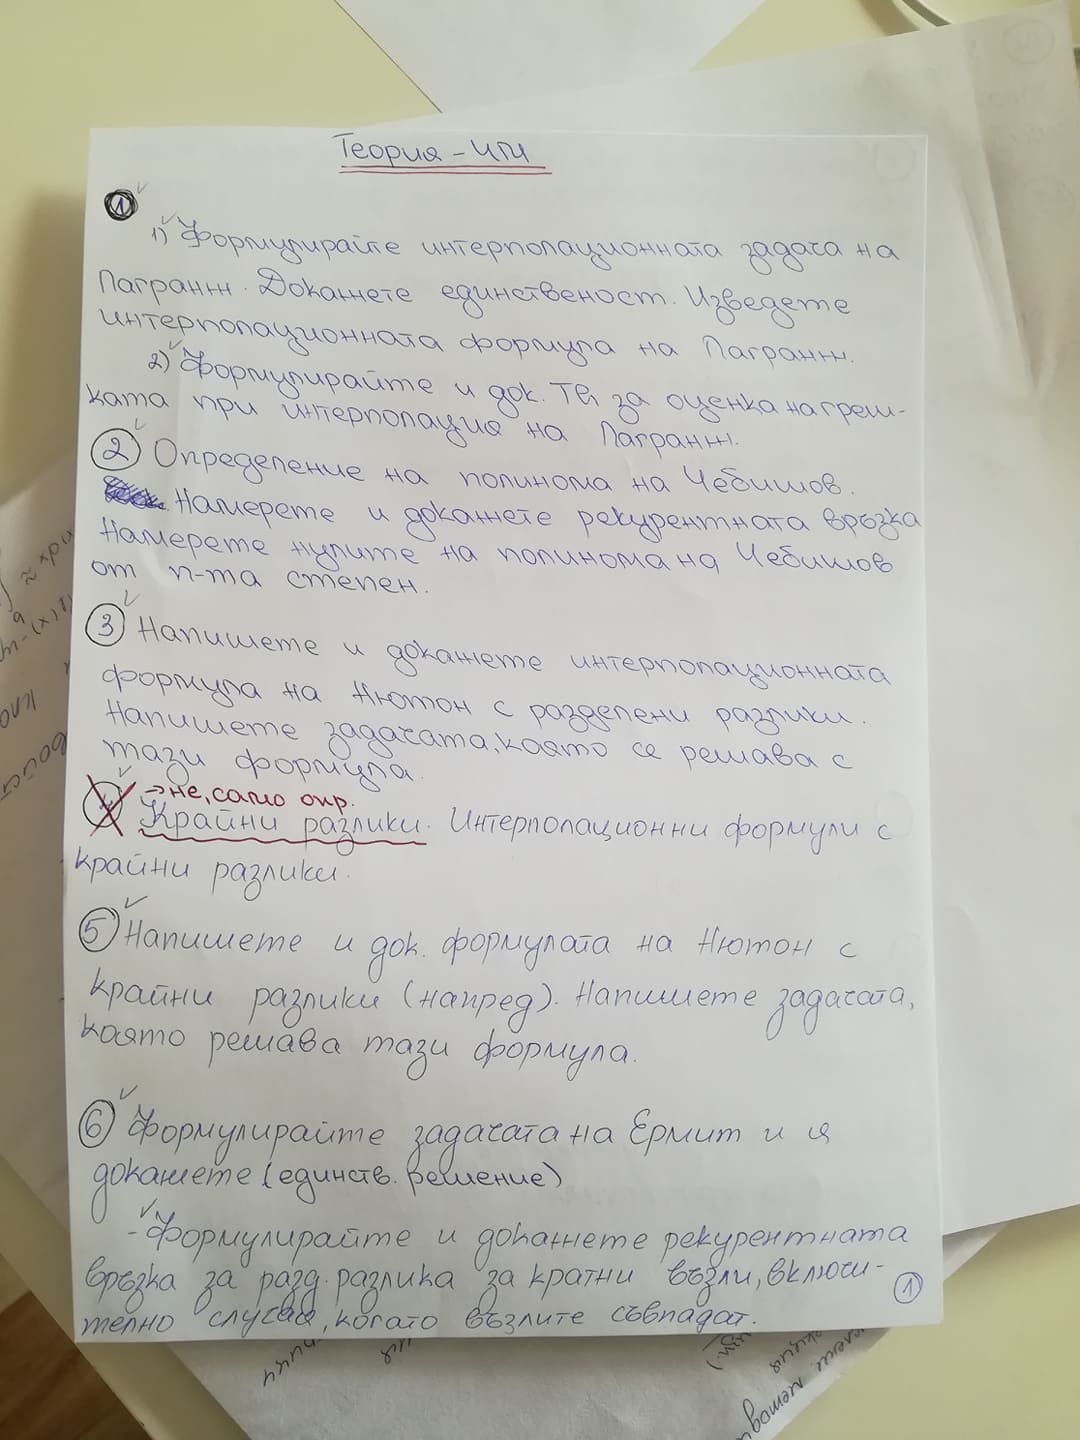 Теория - ЧМ
1
1) Формулирайте интерполационната задача на
Лагранж. Докажете единственост. Изведете
интерполационната формула на Лагранж.
2) Формулирайте и док. Тв за оценка на греш-
ката при интерполация на Лагранж.
2 Определение на полинома на Чебишов.
Намерете и докажете рекурентната връзка
Намерете нулите на полинома на Чебишов
от n-та степен.
3 Напишете и докажете интерполационната
формула на Нютон с разделени разлики.
Напишете задачата, която се решава с
тази формула.
→ не, само опр.
4 Крайни разлики. Интерполационни формули с
крайни разлики.
5 Напишете и док. формулата на Нютон с
крайни разлики (напред). Напишете задачата,
която решава тази формула.
6 Формулирайте задачата на Ермит и я
докажете (единств. решение)
- Формулирайте и докажете рекурентната
връзка за разд. разлика за кратни възли, включи-
телно случая, когато възлите съвпадат.
1